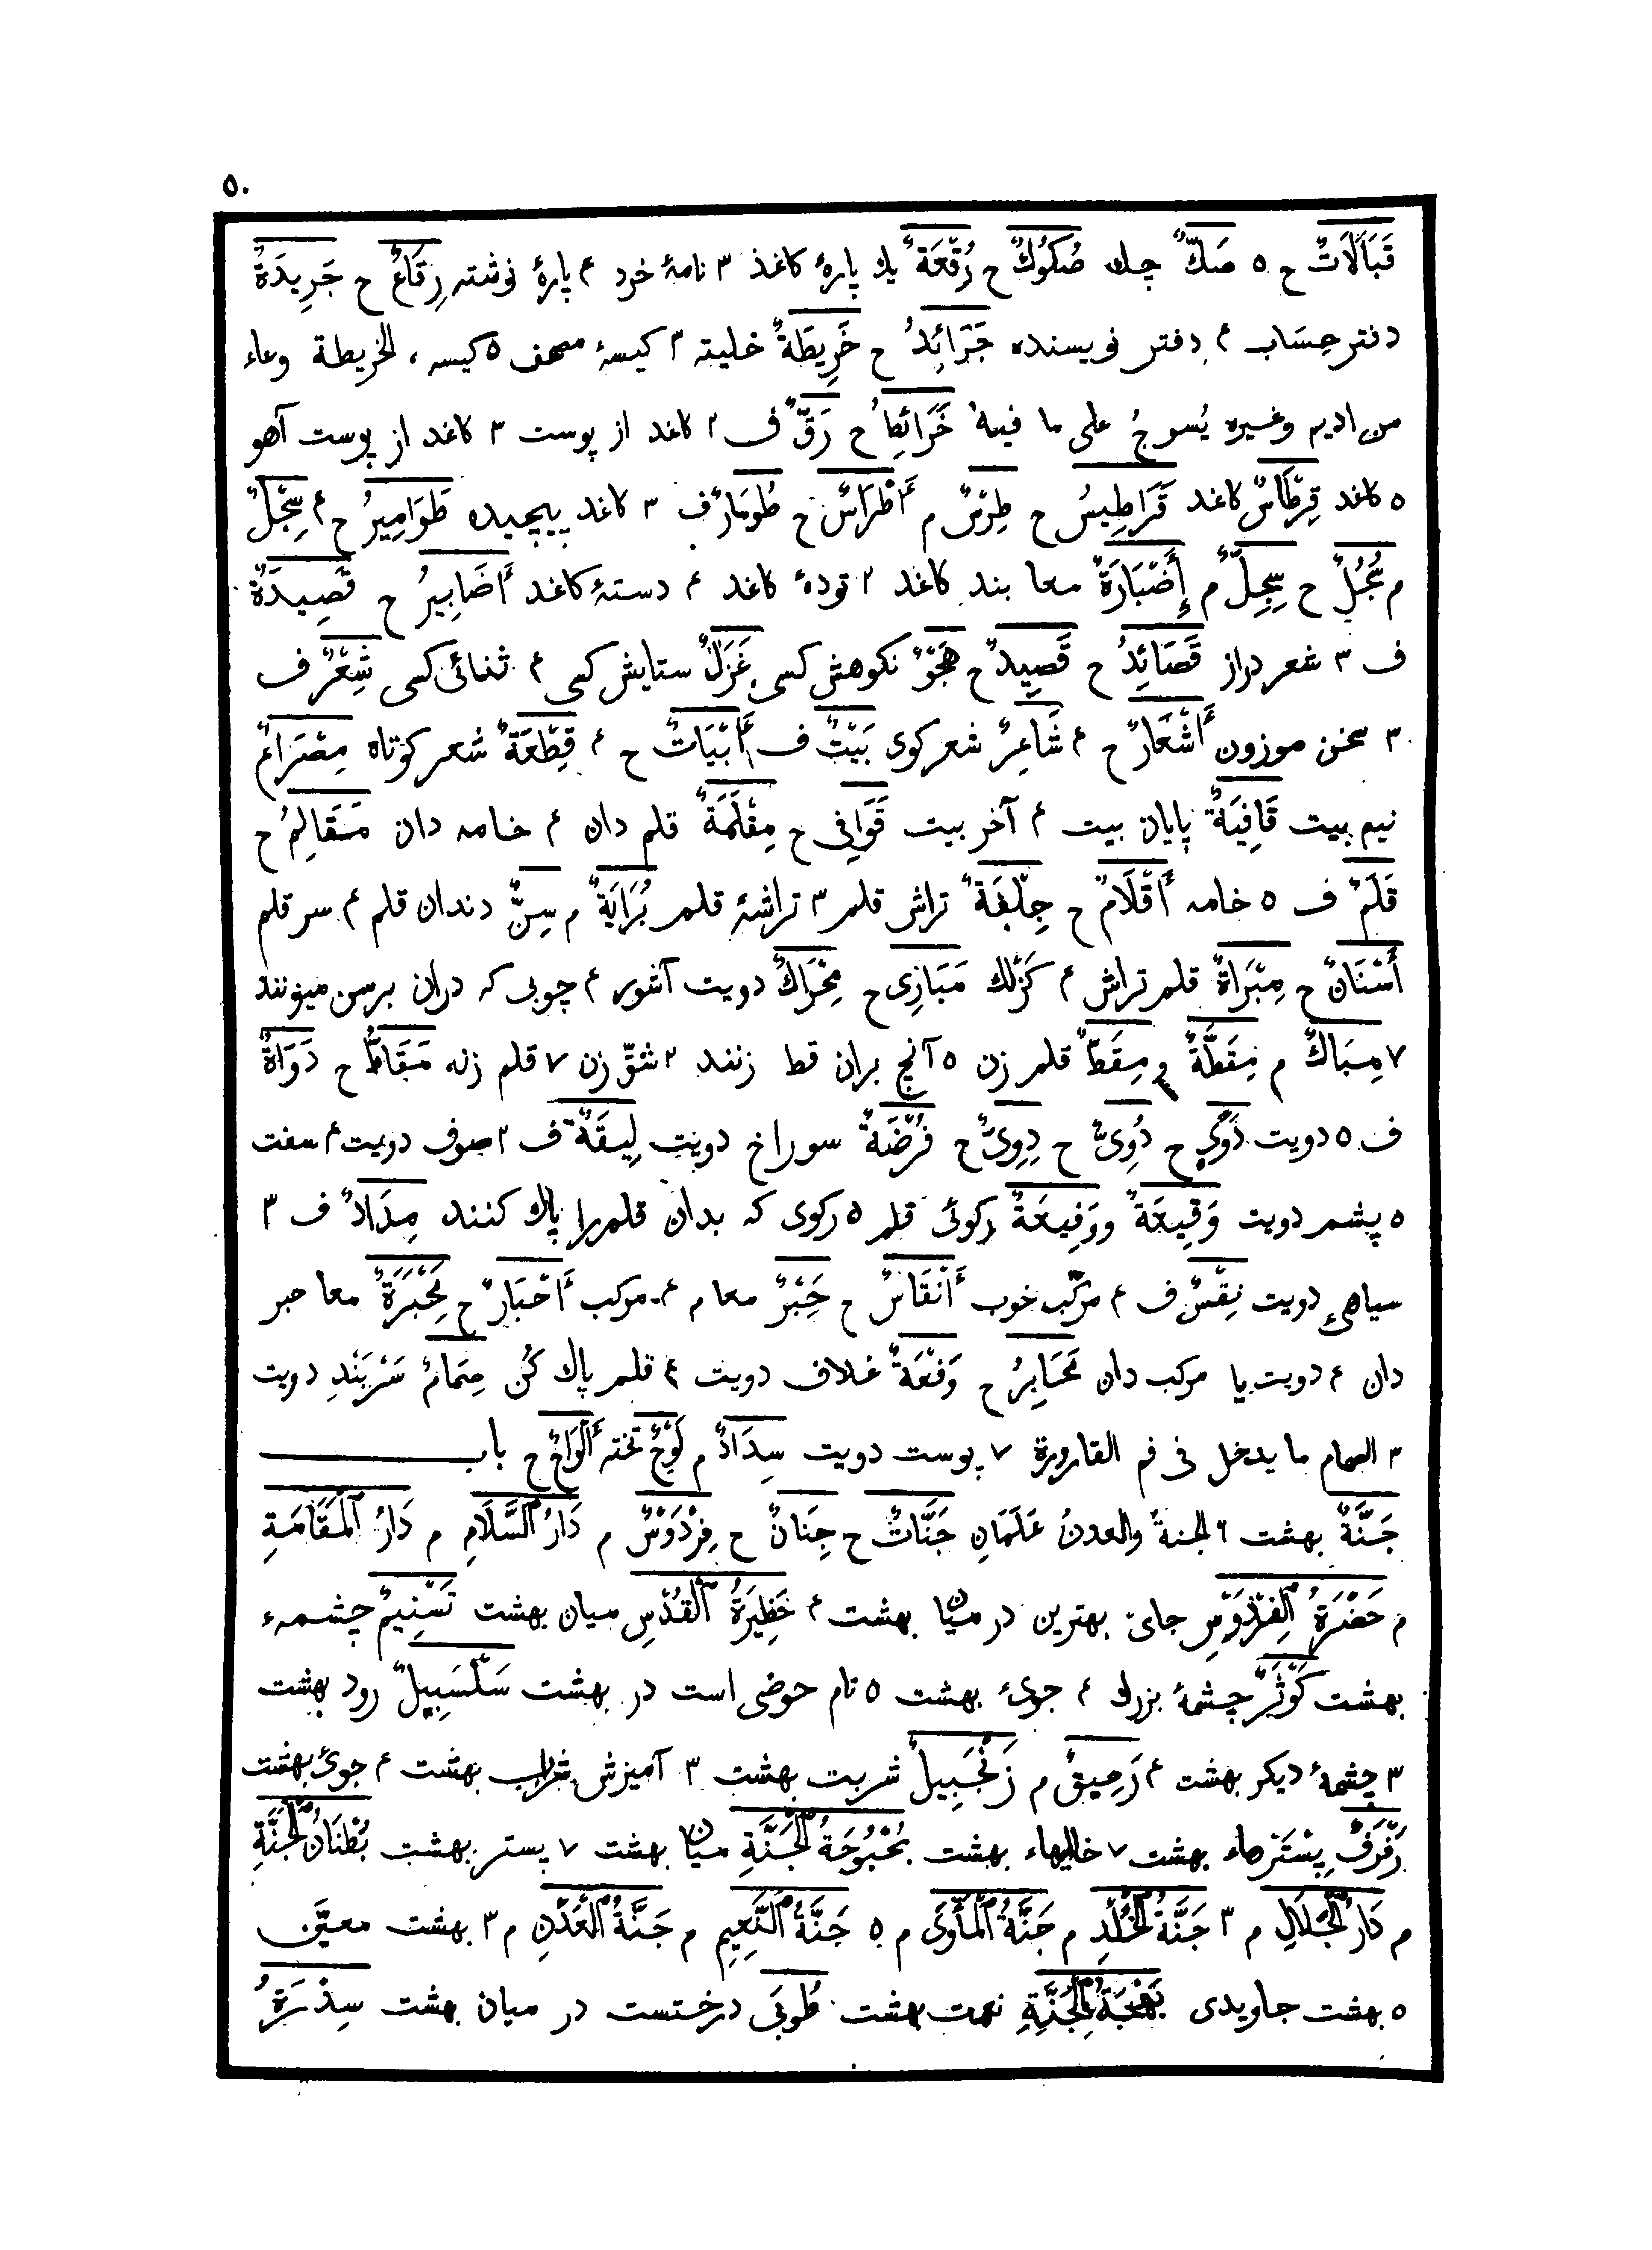 ۵۰
قَبَالَاتٌ ح ۵ صَكٌّ چك صُكُوُكٌ ح رُقْعَةٌ يك پارۀ كاغذ ۳ نامۀ خرد ۴ پارۀ نوشته رِقَاعٌ ح جَرِيدَةٌ
دفتر حِسَاب ۴ دفتر نويسنده جَرَائِدُ ح خَرِيطَةٌ خليته ۳ كيسۀ مصحف ۵ كيسه ، الخريطة وعاء
من اديم وغيره يُسرجُ على ما فيهۀ خَرَائِطُ ح رَقٌّ ف ۲ كاغد از پوست ۳ كاغد از پوست آهو
۵ كاغد قِرْطَاسٌ كاغد قَرَاطِيسُ ح طِرْسٌ م أَطْرَاسٌ ح طُومَارٌ ف ۳ كاغد پيچيده طَوَامِيرُ ح ۴ سِجْلٌ
م سُجُلٌ ح سِجِلٌّ م إِضْبَارَةٌ معا بند كاغد ۲ تودۀ كاغد ۴ دستۀ كاغد أَضَابِيرُ ح قَصِيدَةٌ
ف ۳ شعر دراز قَصَائِدُ ح قَصِيدٌ ح هَجْوٌ نكوهش كسى غَزَلٌ ستايش كسى ۴ ثنائى كسى شِعْرٌ ف
۳ سخن موزون أَشْعَارٌ ح ۴ شَاعِرٌ شعر كوى بَيْتٌ ف أَبْيَاتٌ ح ۴ قِطْعَةٌ شعر كوتاه مِصْرَاعٌ
نيم بيت قَافِيَةٌ پايان بيت ۴ آخر بيت قَوَافِى ح مِقْلَمَةٌ قلم دان ۴ خامه دان مَقَالِمُ ح
قَلَمٌ ف ۵ خامه أَقْلَامٌ ح جِلْفَةٌ تراش قلم ۳ تراشۀ قلم بُرَايَةٌ م سِنٌّ دندان قلم ۴ سر قلم
أَسْنَانٌ ح مِبْرَاةٌ قلم تراش ۴ كَزْلك مَبَازِى ح مِحْرَاكٌ دويت آشور ۴ چوبى كه دران برسن ميزنند
۷ مِسَبَاكٌ م مِقَطَّةٌ و مِقَطٌّ قلم زن ۵ آنچ بران قط زنند ۲ شقّ زن ۷ قلم زنه مَقَاطُّ ح دَوَاةٌ
ف ۵ دويت دَوًى ح دُوِىٌّ ح دِوِىٌّ ح فُرْضَةٌ سوراخ دويت لِيقَةٌ ف ۲ صوف دويت ۴ سفت
۵ پشم دويت وَقِيعَةٌ ووَفِيعَةٌ ركوئ قلم ۵ ركوى كه بدان قلم را پاك كنند مِدَادٌ ف ۳
سياهىِ دويت نِقْسٌ ف ۴ مركّب خوب أَنْقَاسٌ ح حِبْرٌ معا م ۴ مركب أَحْبَارٌ ح مِحْبَرَةٌ معا حبر
دان ۴ دويت يا مركب دان مَحَابِرُ ح وَفْعَةٌ غلاف دويت ۴ قلم پاك كُن صِمَامٌ سَرْبَنْدِ دويت
۳ الصمام ما يدخل فى فم القارورة ۷ پوست دويت سِدَادٌ م لَوْحٌ تخته أَلْوَاحٌ ح باب
جَنَّةٌ بهشت ۶ الجنةُ والعدنُ عَلَمَانِ جَنَّاتٌ ح جِنَانٌ ح فِرْدَوْسٌ م دَارُ ٱلسَّلَامِ م دَارُ ٱلْمُقَامَةِ
م حَضْرَةُ ٱلْفِرْدَوْسِ جاىِ بهترين در ميان بهشت ۴ حَظِيرَةُ ٱلْقُدْسِ ميان بهشت تَسْنِيمٌ چشمهء
بهشت كَوْثَرٌ چشمۀ بزرك ۴ جوىء بهشت ۵ نام حوضى است در بهشت سَلْسَبِيلٌ رود بهشت
۳ چشمۀ ديكر بهشت ۴ رَحِيقٌ م زَنْجَبِيلٌ شربت بهشت ۳ آميزش شراب بهشت ۴ جوئ بهشت
رَفْرَفٌ بِسْتَرهاء بهشت ۷ خاليهاء بهشت بُحْبُوحَةُ ٱلْجَنَّةِ ميان بهشت ۷ پستر بهشت بُطْنَانُ ٱلْجَنَّةِ
م دَارُ ٱلْجَلَالِ م ۳ جَنَّةُ ٱلْخُلْدِ م جَنَّةُ ٱلْمَأْوَىٰ م ۵ جَنَّةُ ٱلنَّعِيمِ م جَنَّةُ ٱلْعَدْنِ م ۳ بهشت معيّن
۵ بهشت جاويدى ٱلْجَنَّةِ نعمت بهشت طُوبَى درختست در ميان بهشت سِدْرَةُ